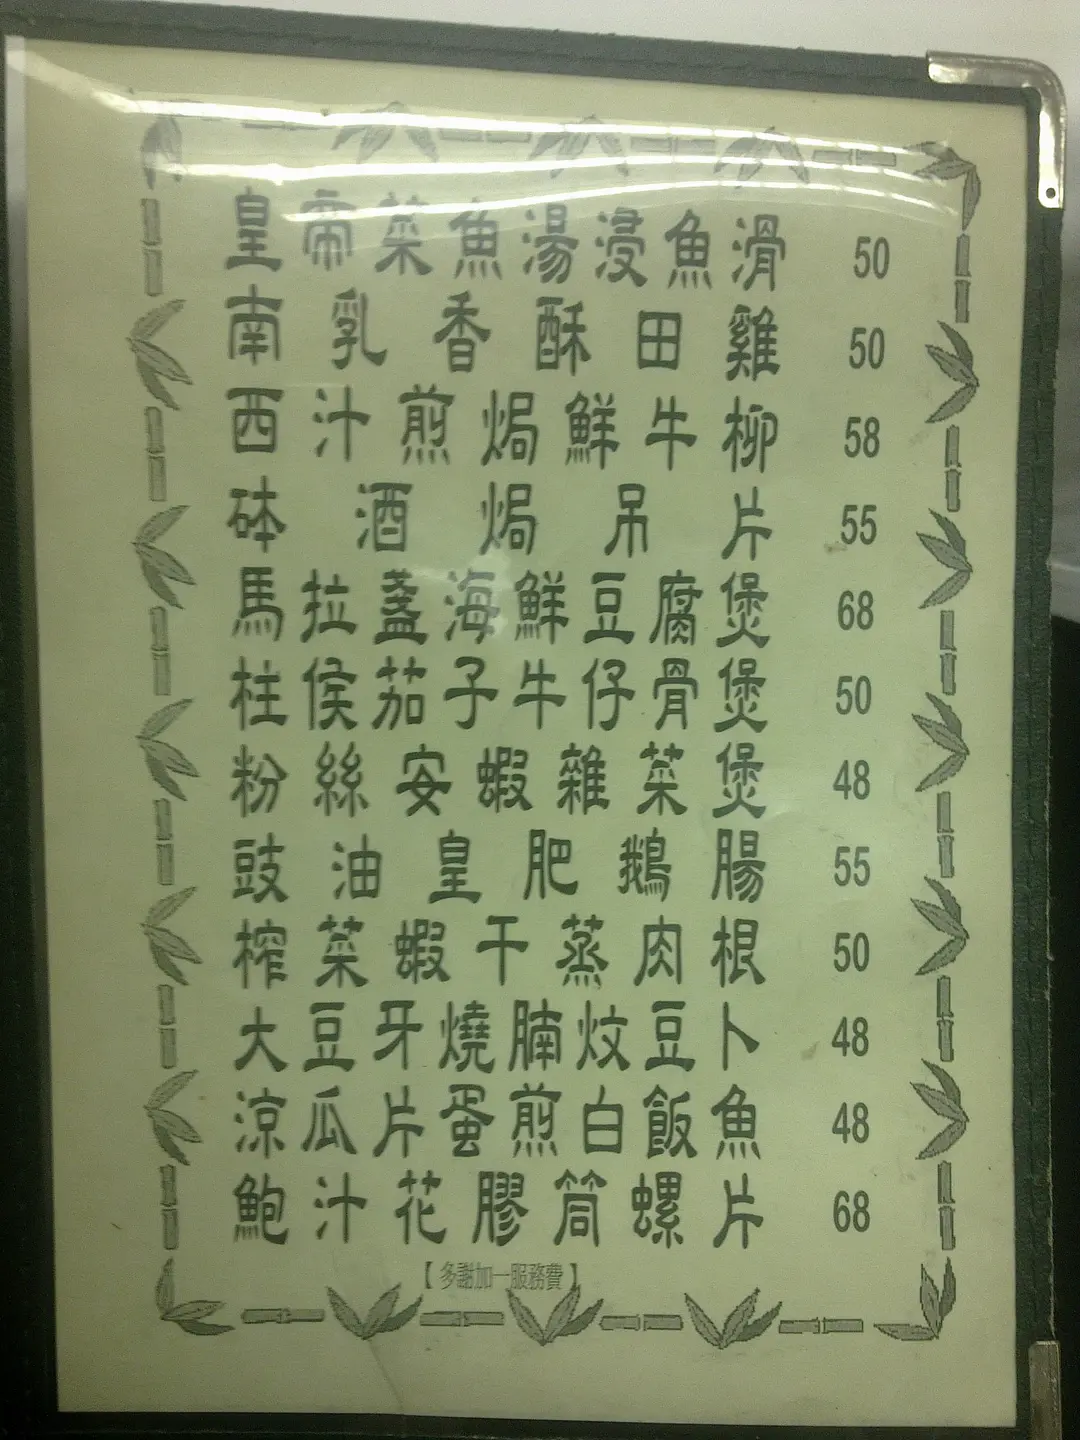 皇帝菜魚湯浸魚滑 50
南乳香酥田雞 50
西汁煎焗鮮牛柳 58
砵酒焗吊片 55
馬拉盞海鮮豆腐煲 68
柱侯茄子牛仔骨煲 50
粉絲安蝦雜菜煲 48
豉油皇肥鵝腸 55
榨菜蝦干蒸肉根 50
大豆牙燒腩炆豆卜 48
涼瓜片蛋煎白飯魚 48
鮑汁花膠筒螺片 68
【多謝加一服務費】